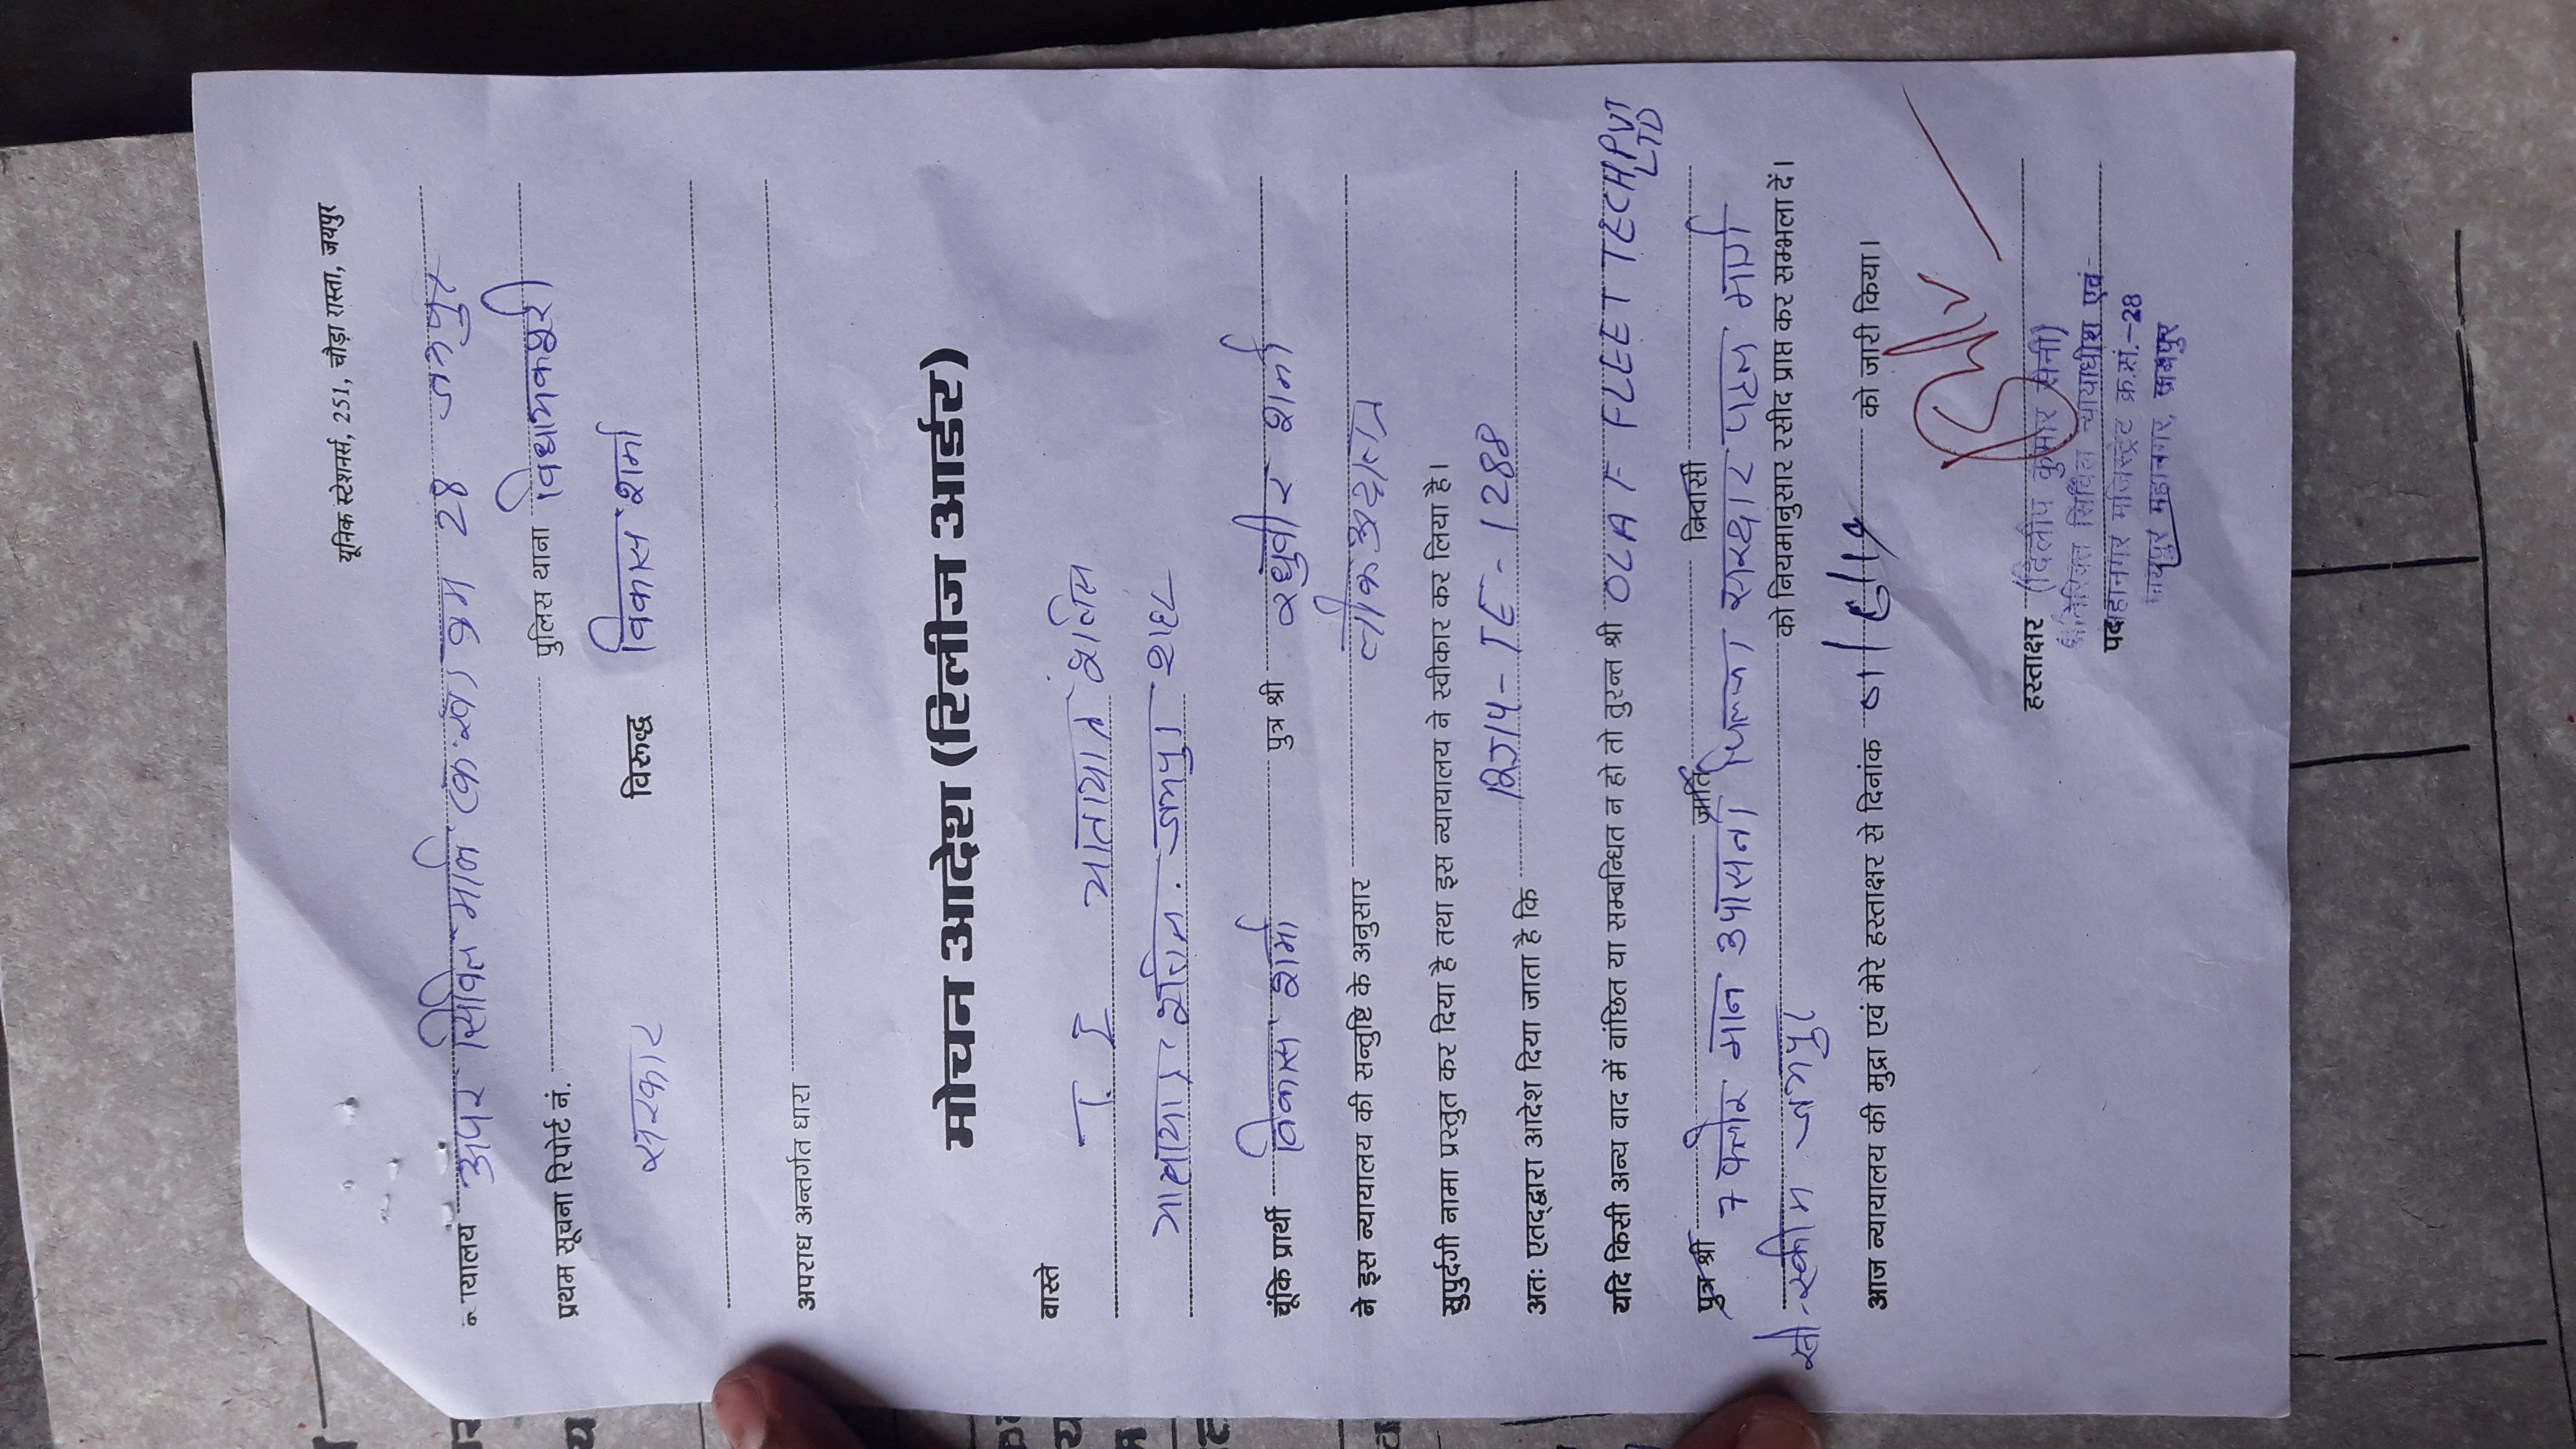 यूनिक स्टेशनर्स, 251, चौड़ा रास्ता, जयपुर
न्यायालय अपर सिविल मजि क्रम 28 जयपुर
प्रथम सूचना रिपोर्ट नं. पुलिस थाना विधायकपुरी
सरकार विरुद्ध विकास शर्मा
अपराध अन्तर्गत धारा
मोचन आदेश (रिलीज आर्डर)
वास्ते
T. I यातायात
यातायात जयपुर शहर
चूंकि प्रार्थी विकास शर्मा पुत्र श्री रघुवीर शर्मा
ने इस न्यायालय की सन्तुष्टि के अनुसार
सुपुर्दगी नामा प्रस्तुत कर दिया है तथा इस न्यायालय ने स्वीकार कर लिया है।
अतः एतद्द्वारा आदेश दिया जाता है कि RJ14-TE-1288
यदि किसी अन्य वाद में वांछित या सम्बन्धित न हो तो तुरन्त श्री OLA F FLEET TECH PVT LTD
पुत्र श्री जाति निवासी
7 फ्लोर मान उपासना प्लाजा सरदार पटेल मार्ग
को नियमानुसार रसीद प्राप्त कर सम्भला दें।
सी-स्कीम जयपुर
आज न्यायालय की मुद्रा एवं मेरे हस्ताक्षर से दिनांक को जारी किया।
हस्ताक्षर (दिलीप कुमार सैनी)
अतिरिक्त सिविल न्यायाधीश एवं
पद महानगर मजिस्ट्रेट क्र.सं.-28
जयपुर महानगर, जयपुर